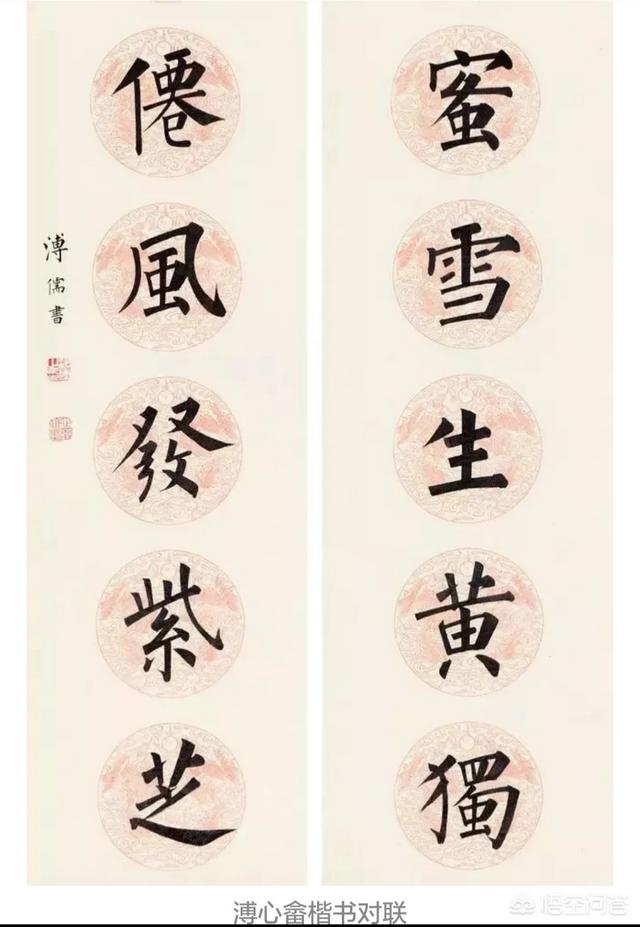 蜜雪生黄獨
僊風發紫芝
溥儒書
溥心畬楷书对联
悟空问答